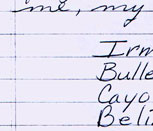 me, my
Irm
Bulle
Cayo
Beli